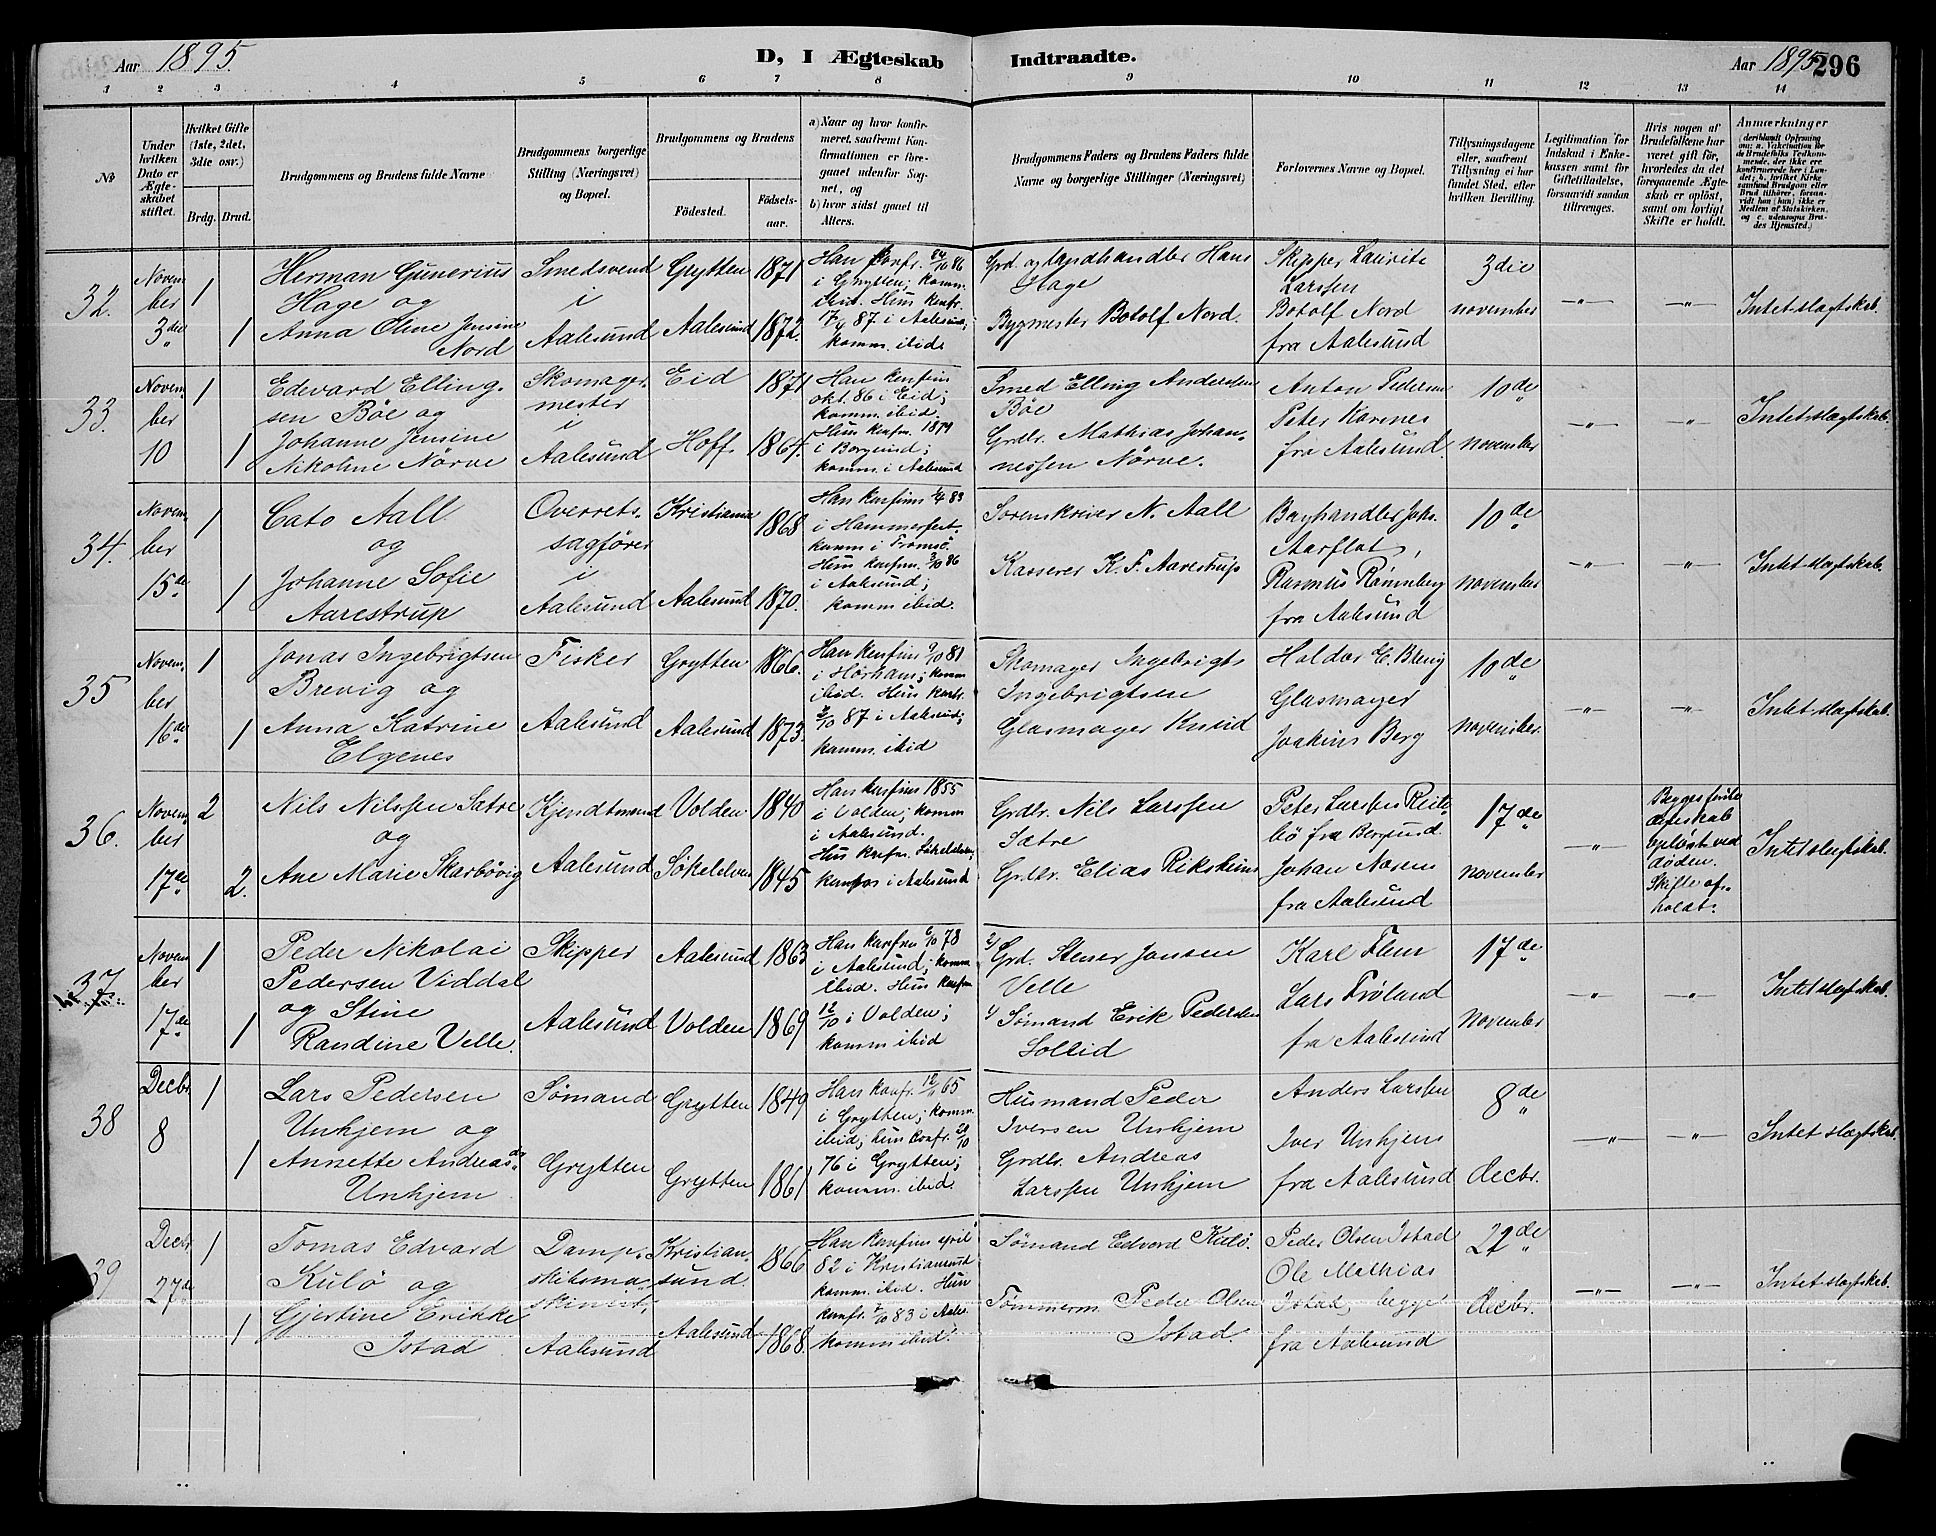 Aar 1895.
D, I Ægteskab Indtraadte.
Aar 1895
296
1 2 3 4 5 6 7 8 9 10 11 12 13 14
No
Under hvilken Dato er Ægteskabet stiftet.
Hvilket Gifte (1ste, 2det, 3die osv.)
Brdg. Brud.
Brudgommens og Brudens fulde Navne
Brudgommens borgerlige Stilling (Næringsvei) og Bopæl.
Brudgommens og Brudens
Fødested.
Fødsels-aar.
a) Naar og hvor konfirmeret, saafremt Konfirmationen er foregaaet udenfor Sognet, og
b) hvor sidst gaaet til Alters.
Brudgommens Faders og Brudens Faders fulde Navne og borgerlige Stillinger (Næringsvei)
Forlovernes Navne og Bopæl.
Tillysningsdagene eller, saafremt Tillysning ei har fundet Sted, efter hvilken Bevilling.
Legitimation for Indskud i Enkekassen samt for Giftetilladelse, forsaavidt saadan tiltrænges.
Hvis nogen af Brudefolkene har været gift før, hvorledes da det foregaaende Ægteskab er opløst, samt om lovligt Skifte er holdt.
Anmærkninger (deriblandt Oplysning om: a. Vakcination for de Brudefolks Vedkommende, der ikke ere konfirmerede her i Landet; b. hvilket Kirkesamfund Brudgom eller Brud tilhører, forsaavidt han (hun) ikke er Medlem af Statskirken, og c. udensogns Brudes Hjemsted.)
32.
November 3die
1
1
Herman Gunerius
Hage og
Anna Oline Jensine
Nord
Smedsvend
i
Aalesund
Grytten
Aalesund
1871
1872.
Han konfr. 24/10 86
i Grytten; komm.
ibid. Hun konfr.
i Aalesund;
komm. ibid
Grd. og landhandler Hans
Hage
Bygmester Botolf Nord.
Skipper Laurits
Larssen
Botolf Nord
fra Aalesund
3die
november
-"-
-"-
Intet slægtskab.
33.
November
10
1
1
Edevard Elling-
sen Böe og
Johanne Jensine
Nikoline Nörve
Skomager-
mester
i
Aalesund
Eid
Hoff.
1871
1864.
Han konfirm
okt. 86 i Eid;
komm. ibid.
Hun konfr. 1879
i Borgund;
komm. i Aalesund
Smed Elling Anderssen
Böe
Grdbr. Mathias Johan-
nessen Nörve.
Anton Pedersen
Peter
fra Aalesund.
10de
november
-"-
-"-
Intet slægtskab.
34.
November
15de
1
1
Cato Aall
og
Johanne Sofie
Aarestrup
Overrets-
sagförer
i
Aalesund
Kristiania
Aalesund
1868
1870.
Han konfirm 83
i Hammerfest.
komm i Tromsö.
Hun konfr. 3/10 86
i Aalesund;
komm ibid.
Sorenskriver N. Aall
Kasserer K. F. Aarestrup
Boghandler Johs.
Aarflot,
Rasmus Rönneberg
fra Aalesund
10de
november
-"-
-"-
Intet slægtskab.
35
November
16de
1
1
Jonas Ingebrigtsen
Brevig og
Anna Katrine
Elgenes
Fisker
Aalesund
Grytten
Aalesund
1866.
1873.
Han konfirm 9/10 81
i; komm
ibid. Hun konfr.
2/10 87 i Aalesund;
komm. ibid
Skomager Ingebrigt
Ingebrigtsen
Glasmager Knud
Haldor E. Brevig
Glasmager
Joakim Berg
10de
november.
-"-
-"-
Intet slægtskab.
36.
November
17de
2
2.
Nils Nilssen Satre
og
Ane Marie Skarbövig
Kjendtmand
Aalesund
Volden
Sökelelven
1840
1845
Han konfirm 1855
i Volden; komm
i Aalesund.
Hun konfr. Sökelelven
i Aalesund
Grdbr. Nils Larssen
Satre
Grdbr. Elias Riksheim
Peter Larssen Reite-
bö fra Borgund.
Johan
fra Aalesund
17de
november
-"-
Begges förste
ægteskab
oplöst ved
döden.
Skifte af-
holdt.
Intet slægtskab.
37
November
17de
1
1
Peder Nikolai
Pedersen Viddal
og Stine
Randine Velle.
Skipper
Aalesund
Aalesund
Volden
1863
1869
Han konfrm 6/10 78
i Aalesund; komm
ibid. Hun konfrm
12/10 i Volden;
komm ibid
2) Grd. Stener Jonsen
Velle
1) Sømand Erik Pedersen
Sollid
Karl Flem
Lars Fröland
fra Aalesund
17de
November
-"-
-"-
Intet slægtskab.
38
Decbr.
8
1
1
Lars Pedersen
Unhjem og
Annette Andreasdr.
Unhjem
Sömand
Grytten
Grytten
Grytten
1849
1861
Han konfr. 12/11 65
i Grytten; komm.
ibid; hun konfr. 29/10
76 i Grytten;
komm. ibid.
Husmand Peder
Iversen Unhjem
Grdbr. Andreas
Larssen Unhjem
Anders Larssen
Iver Unhjem
fra Aalesund
8de
decbr.
-"-
-"-
Intet slægtskab.
39
Decbr
27de
1
1
Tomas Edvard
Kulö og
Gjertine Erikke
Istad
Damp-
skibsma-
skinist,
Aalesund
Kristian-
sund.
Aalesund
1866
1868.
Han konfirm april
82 i Kristiansund
komm. ibid. Hun
konfr. 7/10 83 i Aales.
komm ibid.
Sømand Edvard Kulö.
Tömmerm. Peder Olsen
Istad.
Peder Olsen Istad
Ole Mathias
Istad, begge
fra Aalesund
22de
decbr.
-"-
-"-
Intet slægtskab.